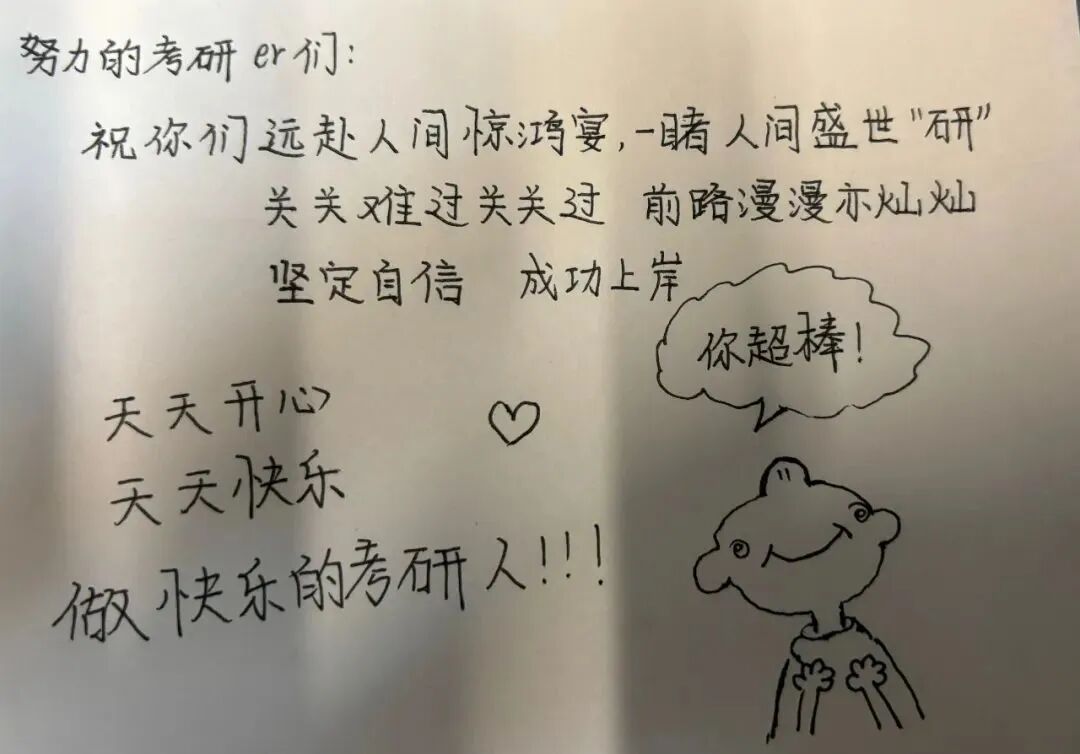 努力的考研er们:
祝你们远赴人间惊鸿宴,一睹人间盛世"研"
关关难过关关过 前路漫漫亦灿灿
坚定自信 成功上岸
你超棒!
天天开心
天天快乐
做快乐的考研人!!!